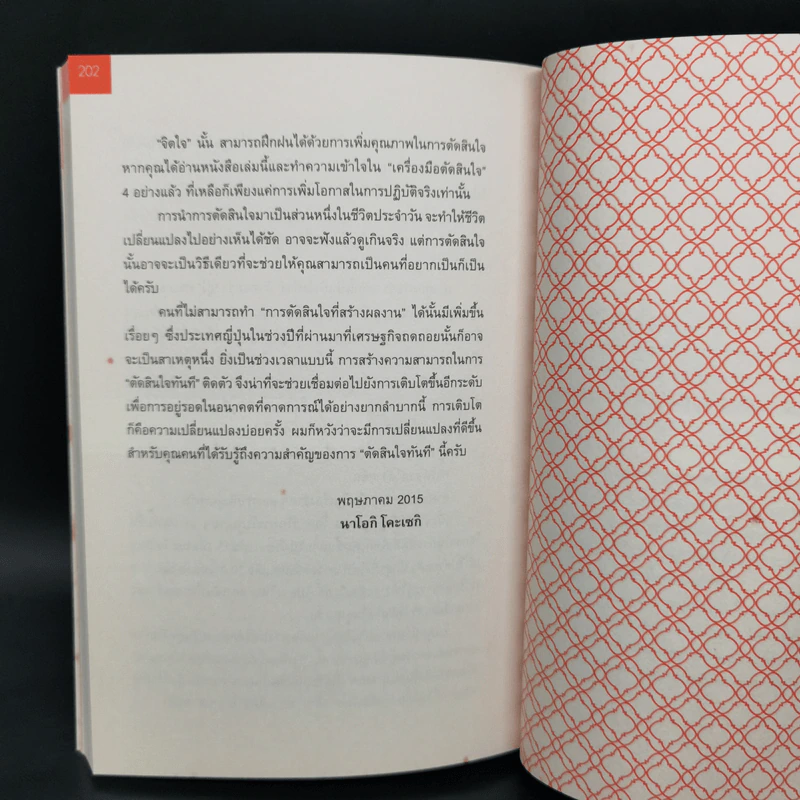 202
"จิตใจ" นั้น สามารถฝึกฝนได้ด้วยการเพิ่มคุณภาพในการตัดสินใจ
หากคุณได้อ่านหนังสือเล่มนี้และทำความเข้าใจใน "เครื่องมือตัดสินใจ"
4 อย่างแล้ว ที่เหลือก็เพียงแค่การเพิ่มโอกาสในการปฏิบัติจริงเท่านั้น
การนำการตัดสินใจมาเป็นส่วนหนึ่งในชีวิตประจำวัน จะทำให้ชีวิต
เปลี่ยนแปลงไปอย่างเห็นได้ชัด อาจจะฟังแล้วดูเกินจริง แต่การตัดสินใจ
นั้นอาจจะเป็นวิธีเดียวที่จะช่วยให้คุณสามารถเป็นคนที่อยากเป็นก็เป็น
ได้ครับ
คนที่ไม่สามารถทำ "การตัดสินใจที่สร้างผลงาน" ได้นั้นมีเพิ่มขึ้น
เรื่อยๆ ซึ่งประเทศญี่ปุ่นในช่วงปีที่ผ่านมาที่เศรษฐกิจถดถอยนั้นก็อาจ
จะเป็นสาเหตุหนึ่ง ยิ่งเป็นช่วงเวลาแบบนี้ การสร้างความสามารถในการ
"ตัดสินใจทันที" ติดตัว จึงน่าที่จะช่วยเชื่อมต่อไปยังการเติบโตขึ้นอีกระดับ
เพื่อการอยู่รอดในอนาคตที่คาดการณ์ได้อย่างยากลำบากนี้ การเติบโต
ก็คือความเปลี่ยนแปลงบ่อยครั้ง ผมก็หวังว่าจะมีการเปลี่ยนแปลงที่ดีขึ้น
สำหรับคุณคนที่ได้รับรู้ถึงความสำคัญของการ "ตัดสินใจทันที" นี้ครับ
พฤษภาคม 2015
นาโอกิ โคะเซกิ